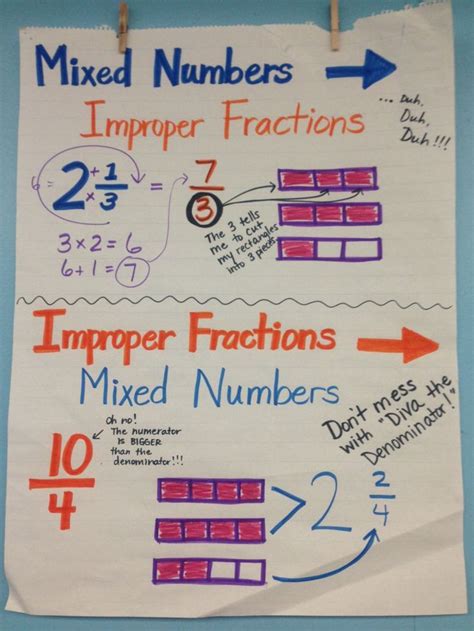 Mixed Numbers →
Improper Fractions
... Duh,
Duh,
Duh!!!
6 = 2 + 1/3 × = 7/3
3 × 2 = 6
6 + 1 = 7
The 3 tells
me to cut
my rectangles
into 3 pieces.
Improper Fractions →
Mixed Numbers
10/4
oh no!
The numerator
is BIGGER
than the
denominator!!!
Don't mess
with "Diva the
Denominator!"
> 2 2/4